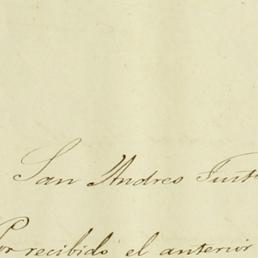 San Andres Tuxt
Por recibido el anterior